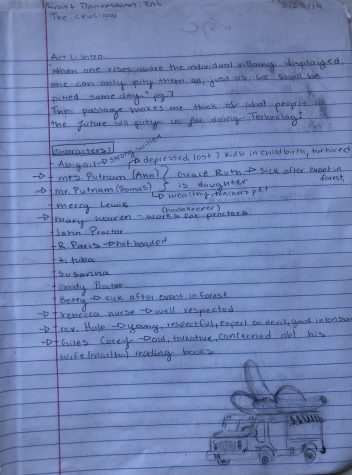 The Crucible
Act 1: Intro
When one rises above the individual villainy displayed,
one can only pity them all, just as we shall be
pitied someday." pg 7
This passage makes me think of what people in
the future will pity us for doing. Technology?
Characters:
Abigail → strong willed
→ Mrs. Putnam (Ann) → depressed, lost 7 kids in child birth, tortured
→ Mr. Putnam (Thomas) → wealthy
Ruth → sick after event in forest,
is daughter
Mercy Lewis
(housekeeper)
→ Mary Warren - works for proctors
John Proctor
R Paris → hot headed
tituba
Susanna
Goody Proctor
Betty → sick after event in forest
→ rebecca nurse → well respected
→ rev. Hale → young, respectful, expert on devil, good intentions
→ Giles Corey → old, talkative, concerned abt his
wife (martha) reading books